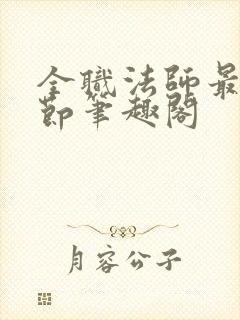 全職法師最
節筆趣閣
月容公子